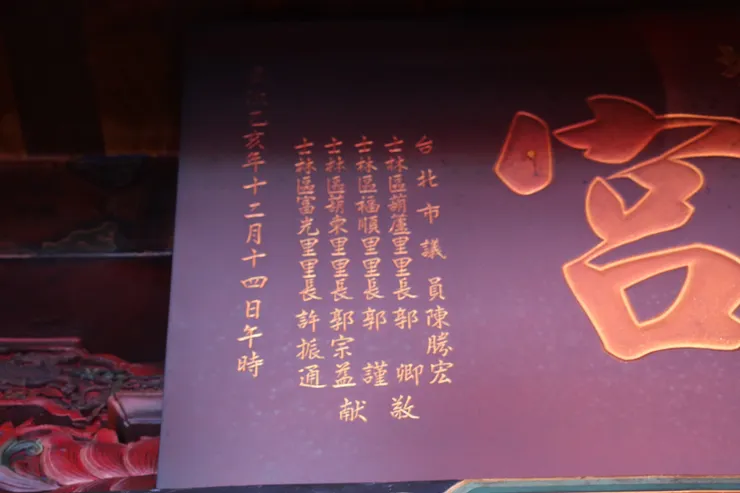 宮
台北市議員陳勝宏
士林區葫蘆里里長郭卿
士林區福順里里長郭謹
士林區葫東里里長郭宗益
士林區富光里里長許振通
敬献
乙亥年十二月十四日午時